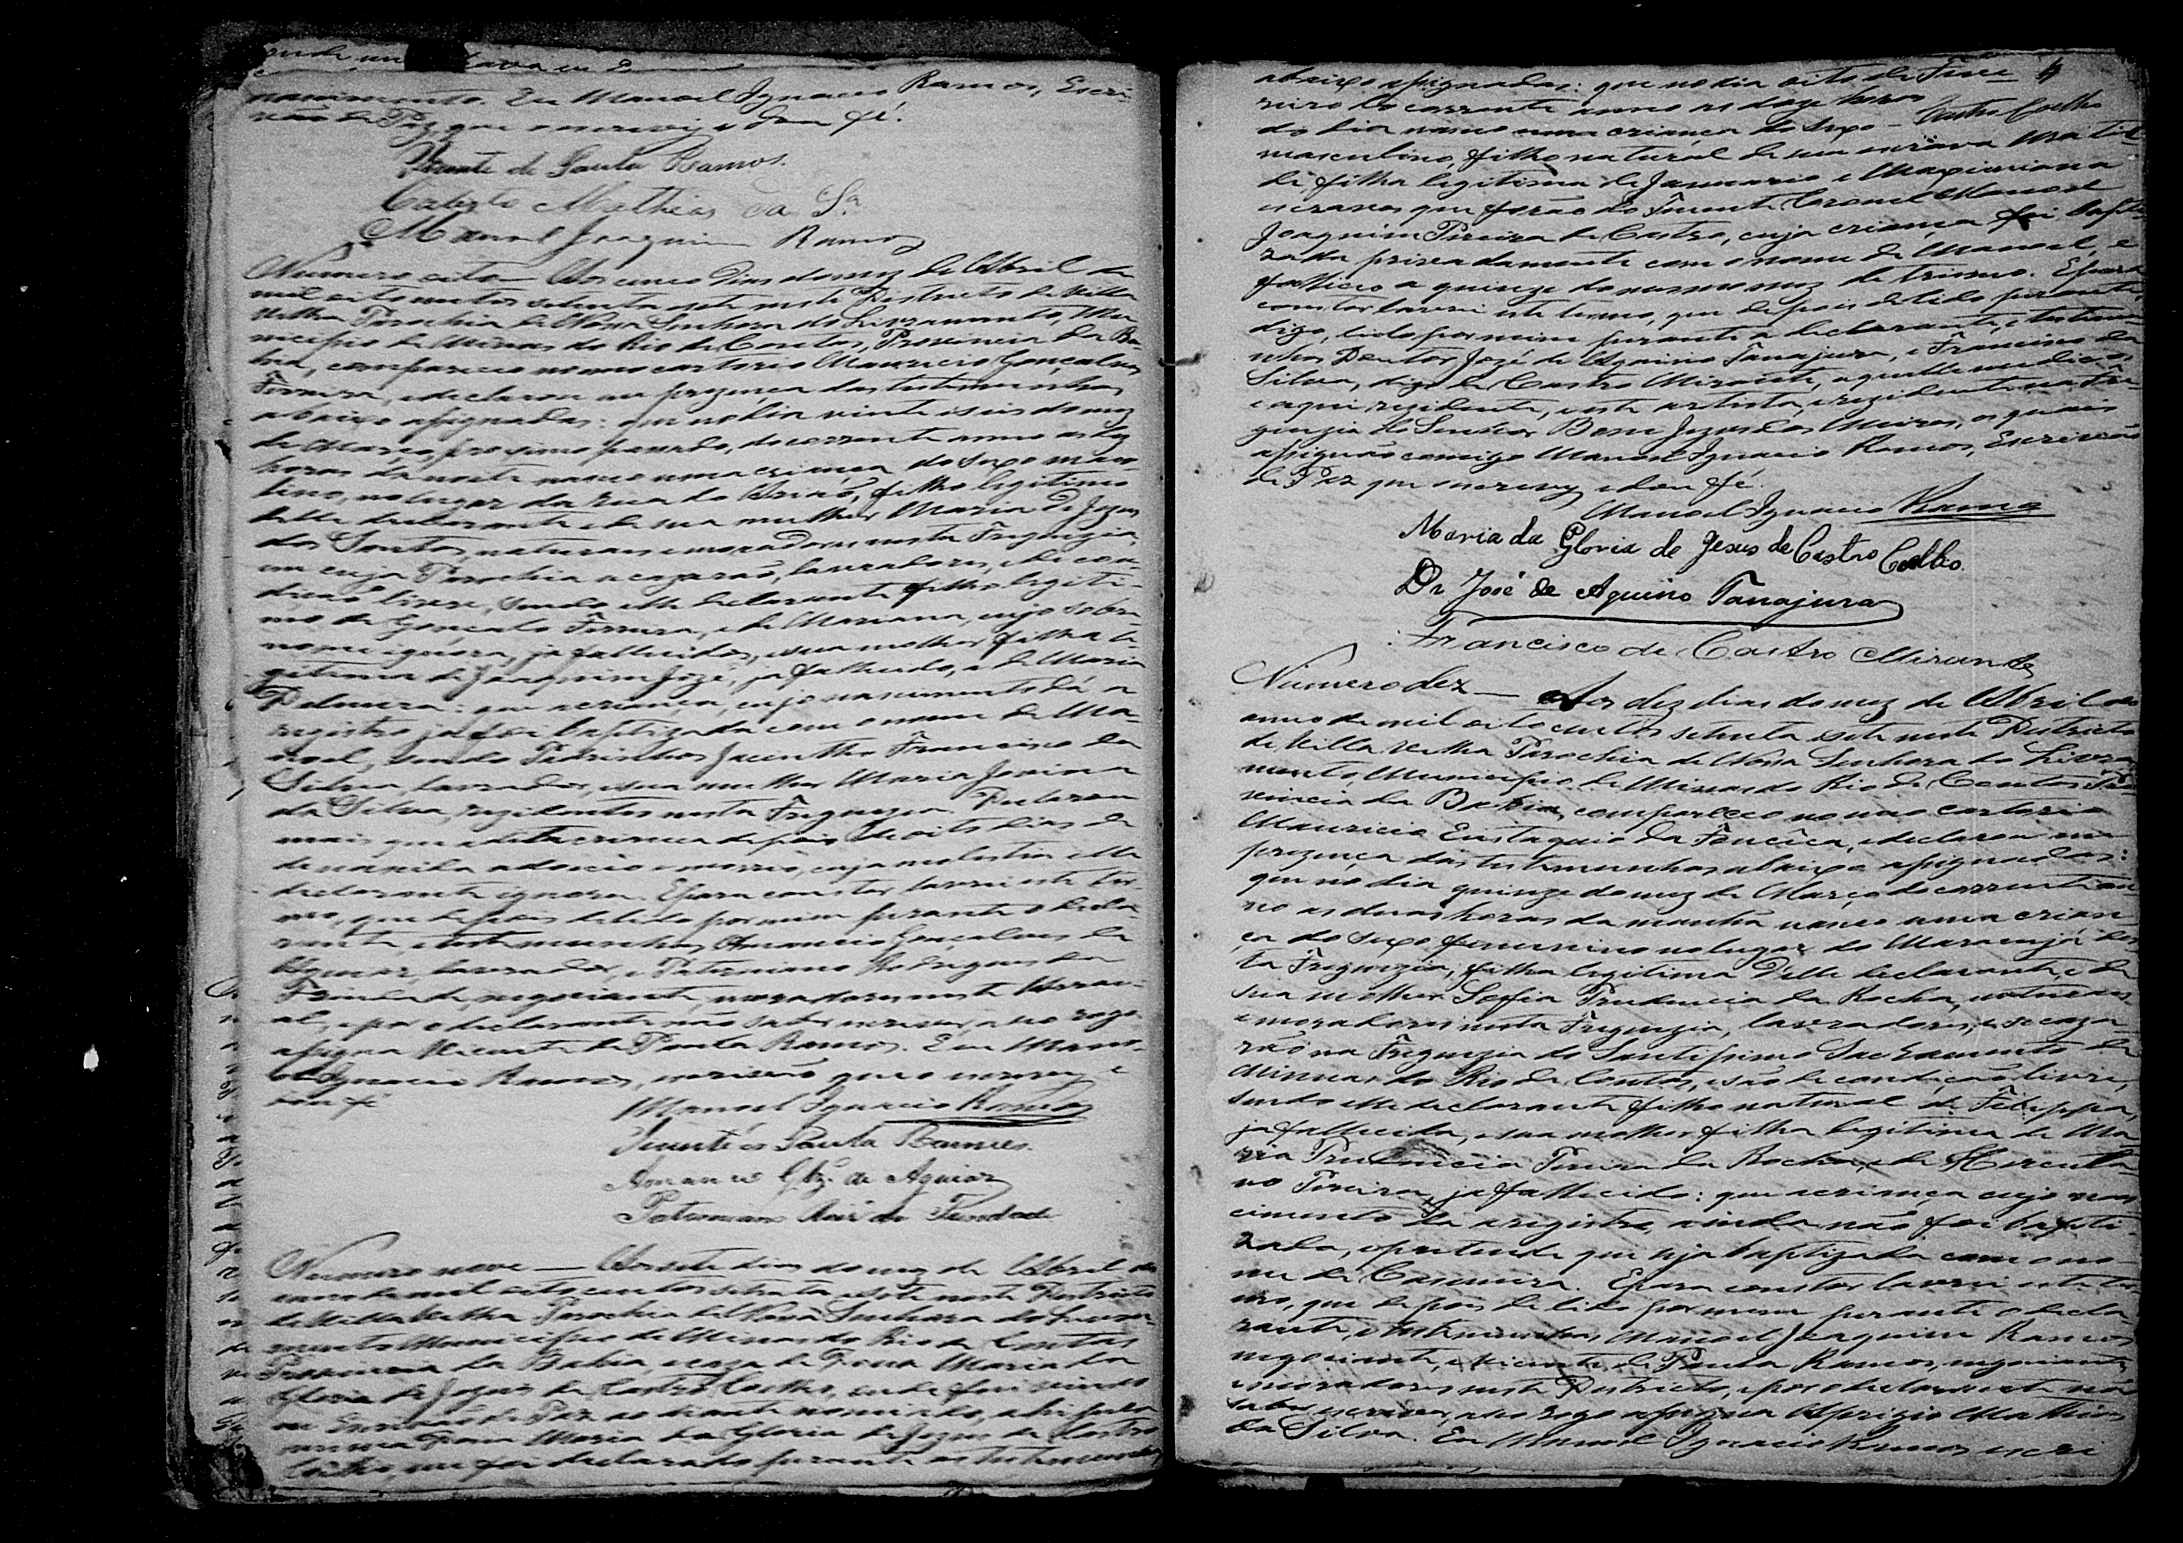 nascimento. Eu Manoel Ignacio Ramos, Escri-
vão de Paz que o escrevy e dou fé.
Vicente de Paula Ramos.
Calisto Mathias da Sª
Manoel Joaquim Ramos
Numero oito — Aos cinco dias do mez de Abril de
mil oito centos setenta e sete neste Districto de Villa
Velha Parochia de Nossa Senhora do Livramento, Mu-
nicipio de Minas do Rio de Contas, Provincia da Ba-
hia, compareceo no meo cartorio Mauricio Gonçalves
Ferreira, e declarou em prezença das testemunhas
abaixo assignadas: que no dia vinte e seis do mez
de Março, proximo passado, do corrente anno as
horas da noite nasceo uma criança do sexo mascu-
lino, no lugar da rua do filho legitimo
delle declarante e de sua mulher Maria de Jezus
dos Santos, naturaes e moradores nesta Freguezia,
em cuja Parochia se cazarão, lavradores, e de con-
dição livre, sendo elle declarante filho legiti-
mo de Gonçalo Ferreira, e de Mariana, cujo sobre
nome ignora, ja fallecidos, e sua mulher filha le-
gitima de Joaquim Jozé, ja fallecido, e de Maria
que a criança, cujo nascimento dá a
registro ja foi baptizada com o nome de Ma-
noel, sendo Padrinhos Jacintho Francisco da
Silva, lavrador, e sua mulher Maria Jovina
da Silva, rezidentes nesta Freguezia. Declarou
mais que a dita criança depois de oito dias de
de nascida adoecio e morrio, cuja molestia elle
declarante ignora. E para constar lavrei este ter-
mo, que depois de lido por mim perante o decla-
rante, e testemunhas Amancio Gonçalves de
Aguiar, lavrador, e Paterniano Rodrigues da
Trindade, negociante, moradores neste Arrai-
al, e por o declarante não saber escrever, a seo rogo
assigna Vicente de Paula Ramos. Eu Mano-
el Ignacio Ramos, escrivão que o escrevy e
dou fé
Manoel Ignacio Ramos
Vicente de Paula Ramos.
Amancio Glz. de Aguiar
Paterniano Roiz da Trindade
Numero nove — Aos sete dias do mez de Abril do
anno de mil oito centos setenta e sete neste Districto
de Villa Velha Parochia de Nossa Senhora do Livra-
mento Municipio de Minas do Rio de Contas
Provincia da Bahia, e caza de Dona Maria da
Gloria de Jezus de Castro Coelho, onde fui vindo
eu Escrivão de Paz ao diante nomiado, ahi pela
mesma Dona Maria da Gloria de Jezus de Castro
Coelho, me foi declarado perante as testemunhas
abaixo assignadas: que no dia oito de Feve
reiro do corrente anno as doze horas
do dia nasceo uma criança do sexo — Castro Coelho
masculino, filho natural de sua escrava Matil-
de, filha legitima de Januario e Maximiana
escravos que forão do Tenente Coronel Manoel
Joaquim Pereira de Castro, cuja criança foi bapti
zada privadamente com o nome de Manoel, e
falleceo a quinze do mesmo mez de trismo. E para
constar lavrei este termo, que depois de lido perante,
digo, lido por mim perante a declarante, e testemu
nhas Doutor Jozé de Aquino Tanajura, e Francisco da
Silva, digo de Castro Mirante, aquelle medico
e aqui rezidente, e este artista, e rezidente na Fre
guezia do Senhor Bom Jezus dos Meiras, os quais
assignão comigo Manoel Ignacio Ramos, Escrivão
de Paz que o escrevy e dou fé.
Manoel Ignacio Ramos
Maria da Gloria de Jesus de Castro Coelho
Dr José de Aquino Tanajura
Francisco de Castro Mirante
Numero dez — Aos dez dias do mez de Abril do
anno de mil oito centos setenta e sete neste Districto
de Villa Velha Parochia de Nossa Senhora do Livra-
mento, Municipio de Minas do Rio de Contas, Pro
vincia da Bahia, compareceo no meo cartorio
Mauricio Eustaquio da Fonceca, e declarou em
prezença das testemunhas abaixo assignadas:
que no dia quinze do mez de Março do corrente an
no as duas horas da manhã nasceo uma crian
ça do sexo femenino no lugar do Maracujá des
ta Freguezia, filha legitima delle declarante, e de
sua molher Sofia Prudencia da Rocha, naturaes
e moradores nesta Freguezia, lavradores, e se caza
rão na Freguezia do Santissimo Sacramento de
Minas do Rio de Contas, e são de condição livre,
sendo elle declarante filho natural de Felippa,
ja fallecida, e sua molher filha legitima de Ma
ria Prudencia Pereira da Rocha, e de Hercula
no Pereira, ja fallecido: que a criança cujo nas
cimento dá a registro, ainda não foi bapti
zada, e pretende que seja baptizada com o no
me de Casimira. E para constar lavrei este ter
mo, que depois de lido por mim perante o decla
rante, e testemunhas, Manoel Joaquim Ramos
negociante, e Vicente de Paula Ramos, negociante,
e moradores neste Districto, e por o declarante não
saber escrever, a seo rogo assigna Aprigio Mathias
da Silva. Eu Manoel Ignacio Ramos escri